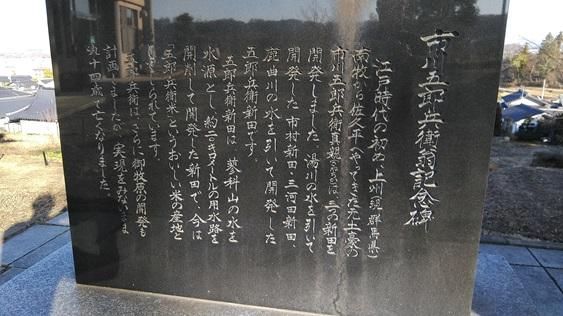 市川五郎兵衛翁記念碑
江戸時代の初め、上州(現 群馬県)
南牧から佐久平へやってきた元土豪の
市川五郎兵衛真親は三つの新田を
開発しました。湯川の水を引いて
開発した市村新田・三河田新田
鹿曲川の水を引いて開発した
五郎兵衛新田です。
五郎兵衛新田は、蓼科山の水を
水源とし、約二十キロメートルの用水路を
開削して開発した新田で、今は
「五郎兵衛米」というおいしい米の産地と
して知られています。
五郎兵衛は、さらに御牧原の開発も
計画しましたが、実現をみないまま
九十四歳で亡くなりました。